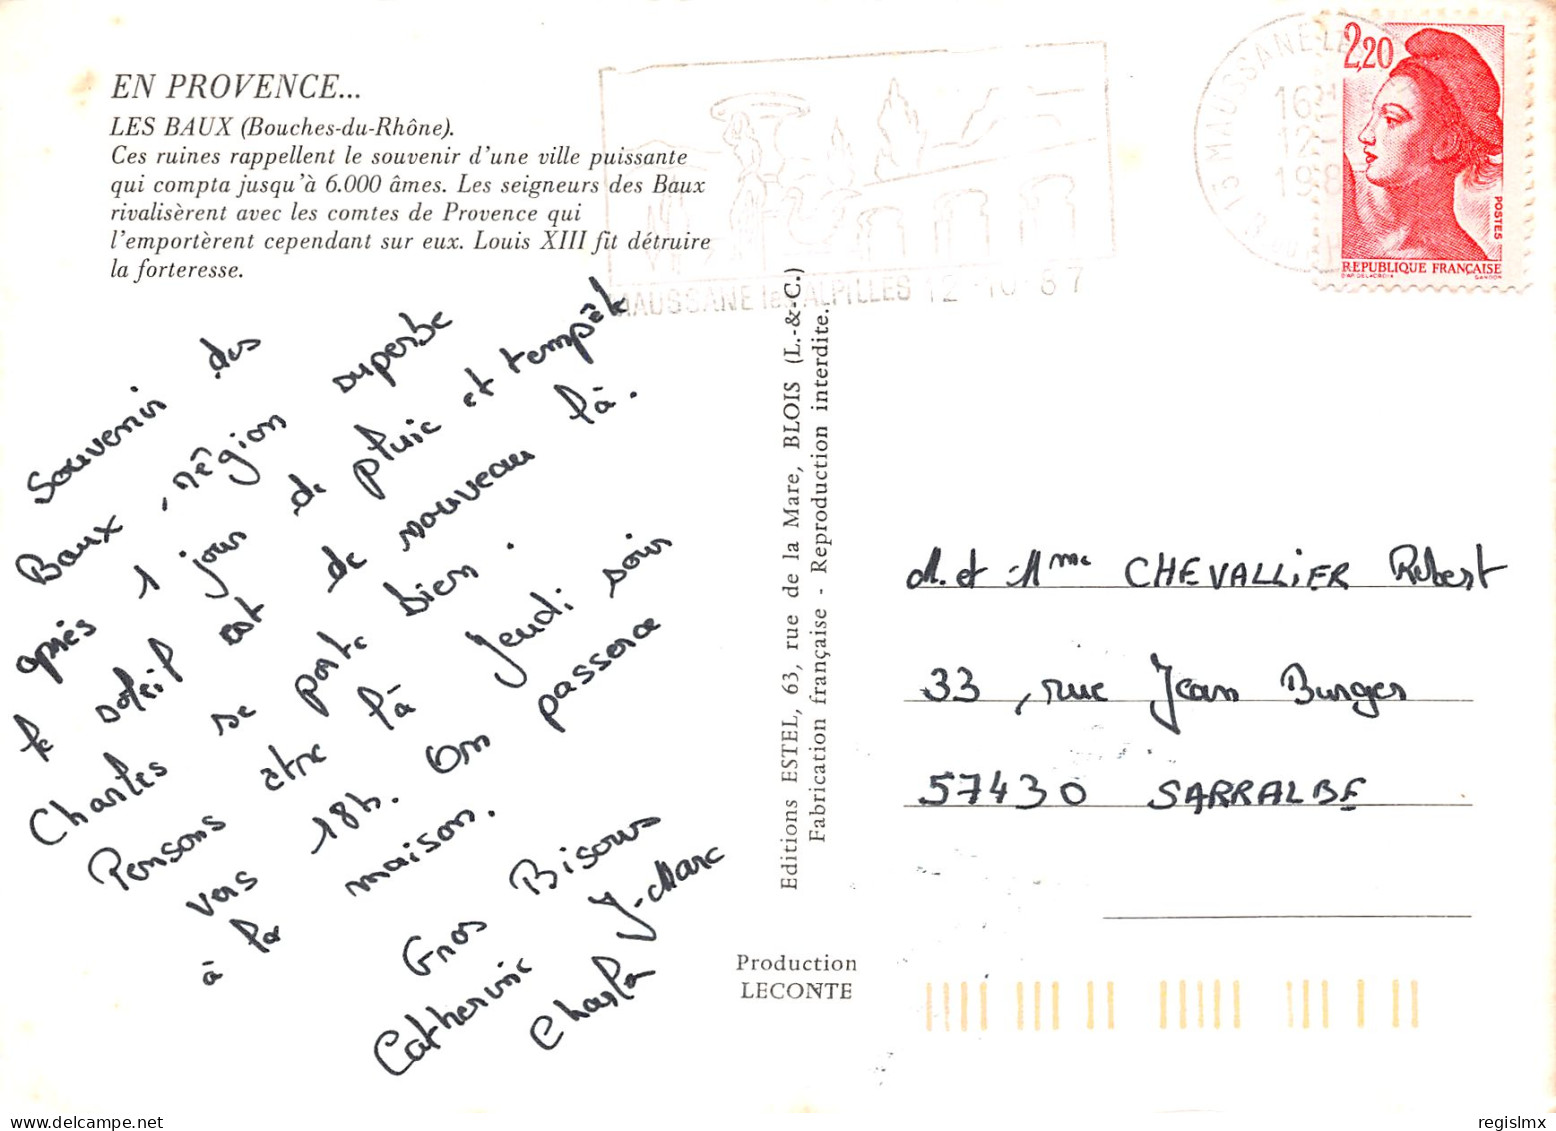 EN PROVENCE...
LES BAUX (Bouches-du-Rhône).
Ces ruines rappellent le souvenir d'une ville puissante
qui compta jusqu'à 6.000 âmes. Les seigneurs des Baux
rivalisèrent avec les comtes de Provence qui
l'emportèrent cependant sur eux. Louis XIII fit détruire
la forteresse.
Souvenir des
Baux, région superbe
après 1 jour de pluie et tempête
le soleil est de nouveau là.
Charles se porte bien.
Pensons être là Jeudi soir
vers 18h. On passera
à la maison.
Gros Bisous
Catherine J-Marc
Editions ESTEL, 63, rue de la Mare, BLOIS (L.-&-C.)
Fabrication française - Reproduction interdite.
Production
LECONTE
MAUSSANE les ALPILLES 12-10-87
13 MAUSSANE-LE
16H
12
198
2,20
POSTES
REPUBLIQUE FRANÇAISE
D'AP. DELACROIX GANDON
M. et Mme CHEVALLIER Robert
33, rue Jean Burger
57430 SARRALBE
regislmx